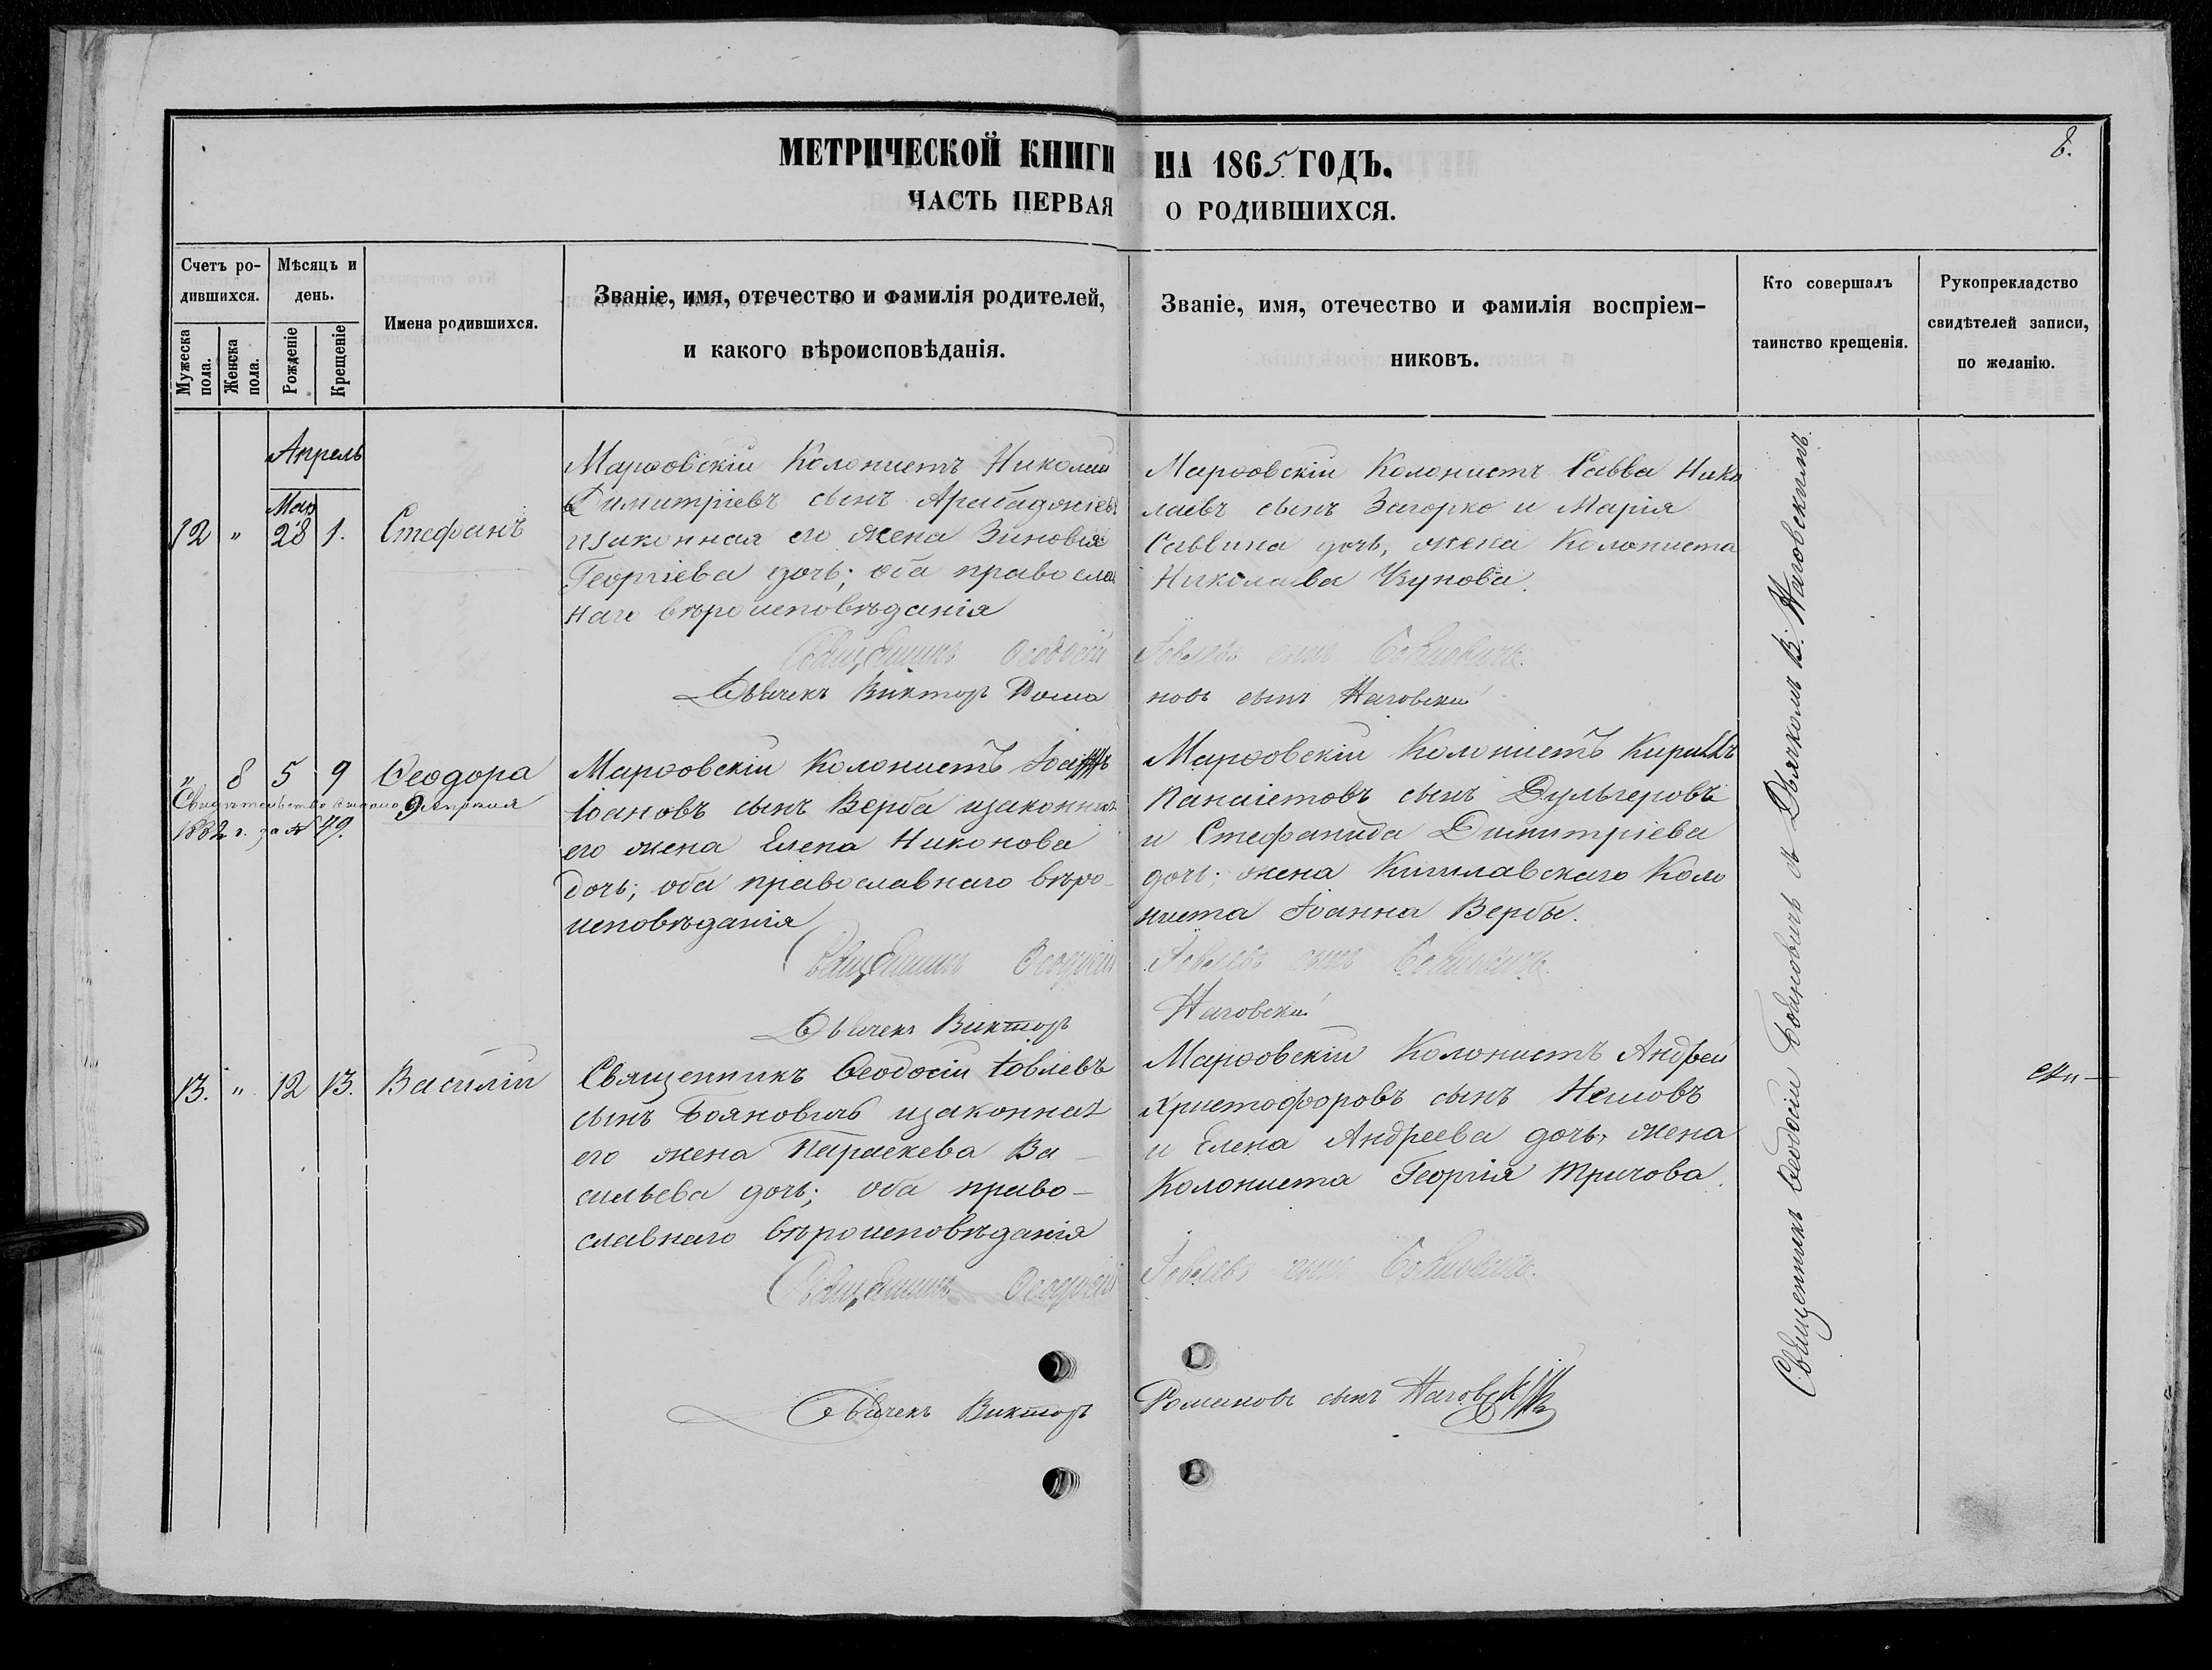 МЕТРИЧЕСКОЙ КНИГИ НА 1865 ГОДЪ.
8.
ЧАСТЬ ПЕРВАЯ О РОДИВШИХСЯ.
Счетъ ро-
дившихся.
Мужеска
пола.
Женска
пола.
Мѣсяцъ и
день.
Рожденіе
Крещеніе
Имена родившихся.
Званіе, имя, отечество и фамилія родителей,
и какого вѣроисповѣданія.
Званіе, имя, отечество и фамилія воспріем-
никовъ.
Кто совершалъ
таинство крещенія.
Рукоприкладство
свидѣтелей записи,
по желанію.
Апрель
Май
12 " 28 1. Стефанъ
Марѳовскій Колонистъ Николай
Димитріевъ сынъ Арабаджіевъ
изаконная его жена Зиновія
Георгіева дочь; оба православ
наго вѣроисповѣданія
Марѳовскій Колонистъ Савва Нико
лаевъ сынъ Загорко и Марія
Саввина дочь, жена Колониста
Николаева Узунова.
Священникъ Ѳеодосій Іовлевъ сынъ Бояновичъ.
Дьячекъ Викторъ Рома новъ сынъ Наговскій
" 8 5 9 Ѳеодора
Свидѣтельство выдано 9 Апрѣля
1882 г. за № 79.
Марѳовскій Колонистъ
Іоановъ сынъ Верба изаконная
его жена Елена Никонова
дочь; оба православнаго вѣро-
исповѣданія
Марѳовскій Колонистъ Кириллъ
Панаіетовъ сынъ Дульгеровъ
и Стефанида Димитріева
дочь; жена Кишлавскаго Коло
ниста Іоанна Вербы.
Священникъ Ѳеодосій Іовлевъ сынъ Бояновичъ.
Дьячекъ Викторъ Наговскій
13. " 12 13. Василій
Священникъ Ѳеодосій Іовлевъ
сынъ Бояновичъ изаконная
его жена Параскева Ва-
сильева дочь; оба право-
славнаго вѣроисповѣданія
Марѳовскій Колонистъ Андрей
Христофоровъ сынъ Нешовъ
и Елена Андреева дочь, жена
Колониста Георгія Тричова.
Священникъ Ѳеодосій Іовлевъ сынъ Бояновичъ.
Дьячекъ Викторъ Романовъ сынъ Наговскій
Священникъ Ѳеодосій Бояновичъ съ Дьячкомъ В. Наговскимъ.